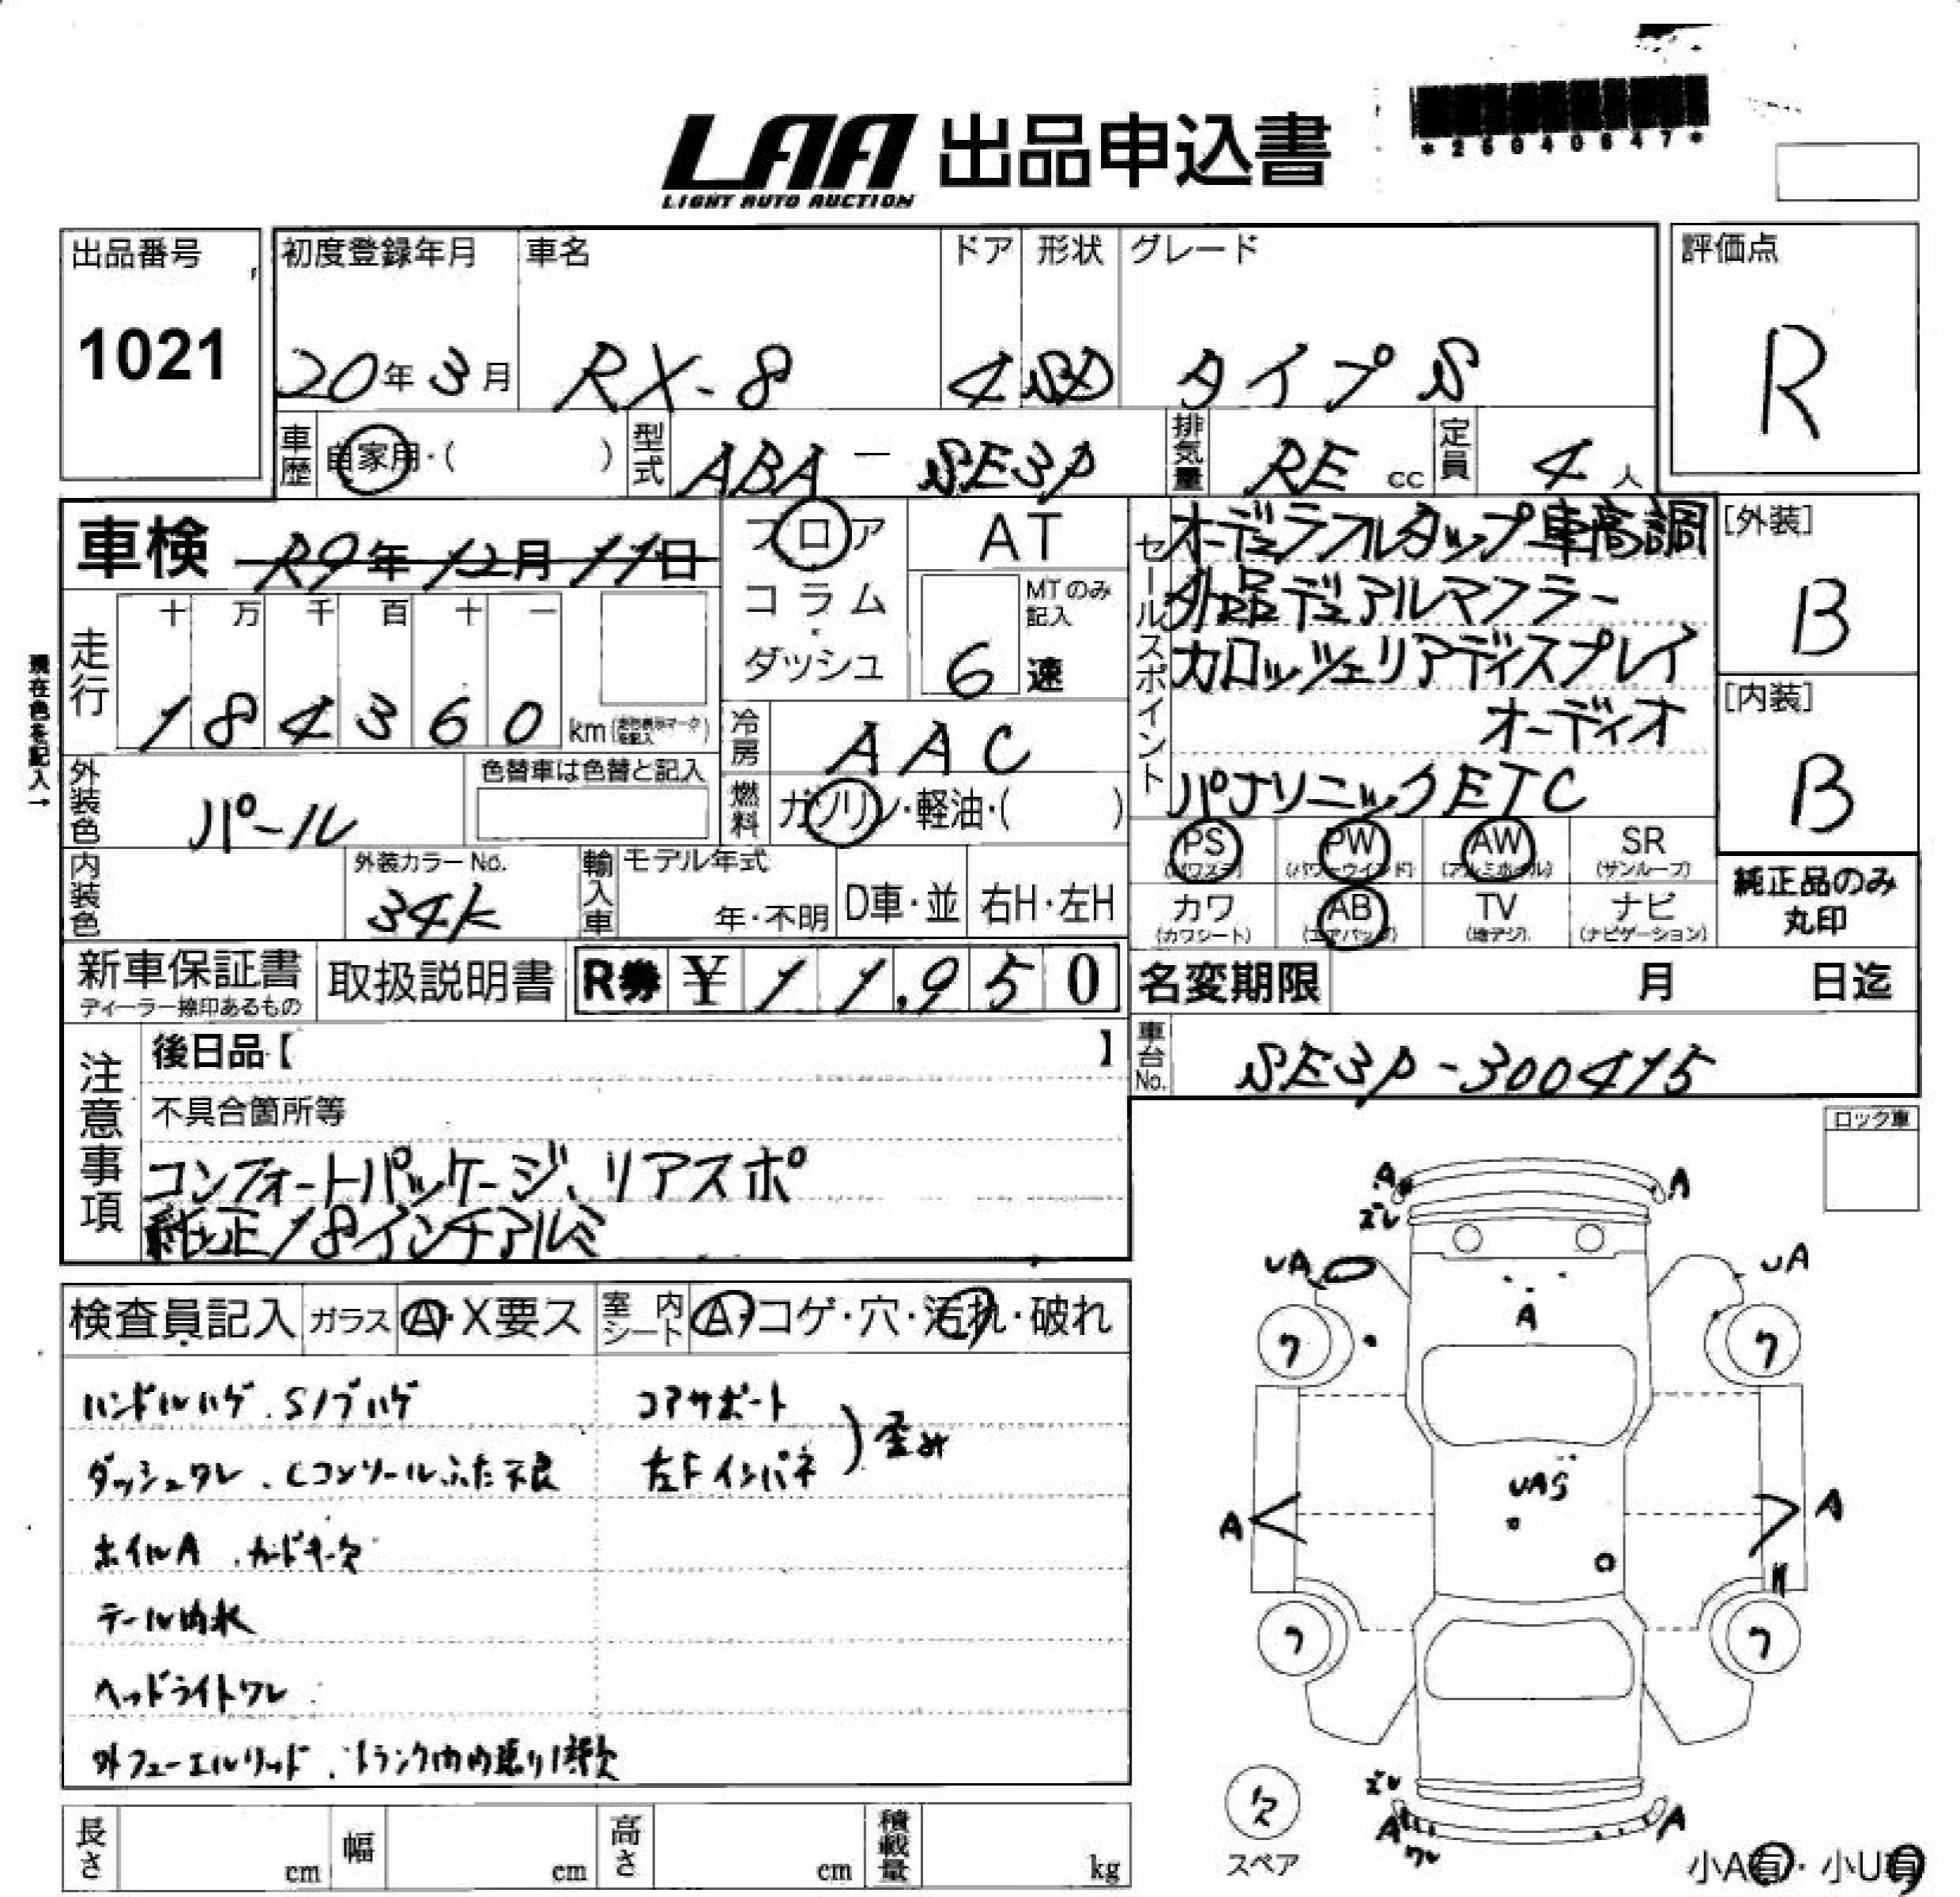 *25040647*
LAA 出品申込書
LIGHT AUTO AUCTION
出品番号
1021
初度登録年月
20年3月
車名
RX-8
ドア
4
形状
SD
グレード
タイプS
評価点
R
車歴
自家用・( )
型式
ABA - SE3P
排気量
RE cc
定員
4人
車検 R9年12月11日
フロア
コラム
・
ダッシュ
AT
MTのみ
記入
6 速
セールスポイント
オーデュラフルタップ車高調
外品デュアルマフラー
カロッツェリアディスプレイ
オーディオ
パナソニックETC
[外装]
B
[内装]
B
現在色を記入→
走行
十 万 千 百 十 一
1 8 4 3 6 0 km
冷房
AAC
燃料
ガソリン・軽油・( )
外装色
パール
色替車は色替と記入
内装色
外装カラーNo.
34K
輸入車
モデル年式
年・不明
D車・並
右H・左H
PS
(パワステ)
PW
(パワーウインド)
AW
(アルミホイル)
SR
(サンルーフ)
カワ
(カワシート)
AB
(エアバック)
TV
(地デジ)
ナビ
(ナビゲーション)
純正品のみ
丸印
新車保証書
ディーラー捺印あるもの
取扱説明書
R券 ¥ 11,950
名変期限 月 日迄
車台No.
SE3P-300415
注意事項
後日品【 】
不具合箇所等
コンフォートパッケージ、リアスポ
純正18インチアルミ
検査員記入
ガラス
A・X要ス
室内シート
A・コゲ・穴・汚れ・破れ
ハンドルハゲ、Sノブハゲ
ダッシュワレ、Cコンソールふた不良
ホイルA、カードキー欠
テール内水
ヘッドライトワレ
外フューエルリッド、トランク内内張り1部欠
コアサポート
左Fインパネ
)歪み
長さ cm
幅 cm
高さ cm
積載量 kg
ロック車
A
A
ズレ
UA
UA
A
ワ
ワ
UAS
A
A
ワ
ワ
ズレ
A
ワレ
A
欠
スペア
小A有・小U有